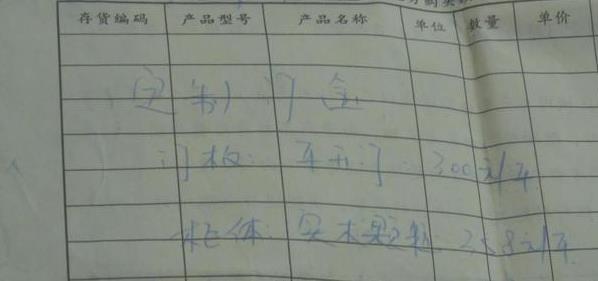 存货编码 产品型号 产品名称 单位 数量 单价
定制门
门板：平开门：300元/平
柜体：实木颗粒：258元/平